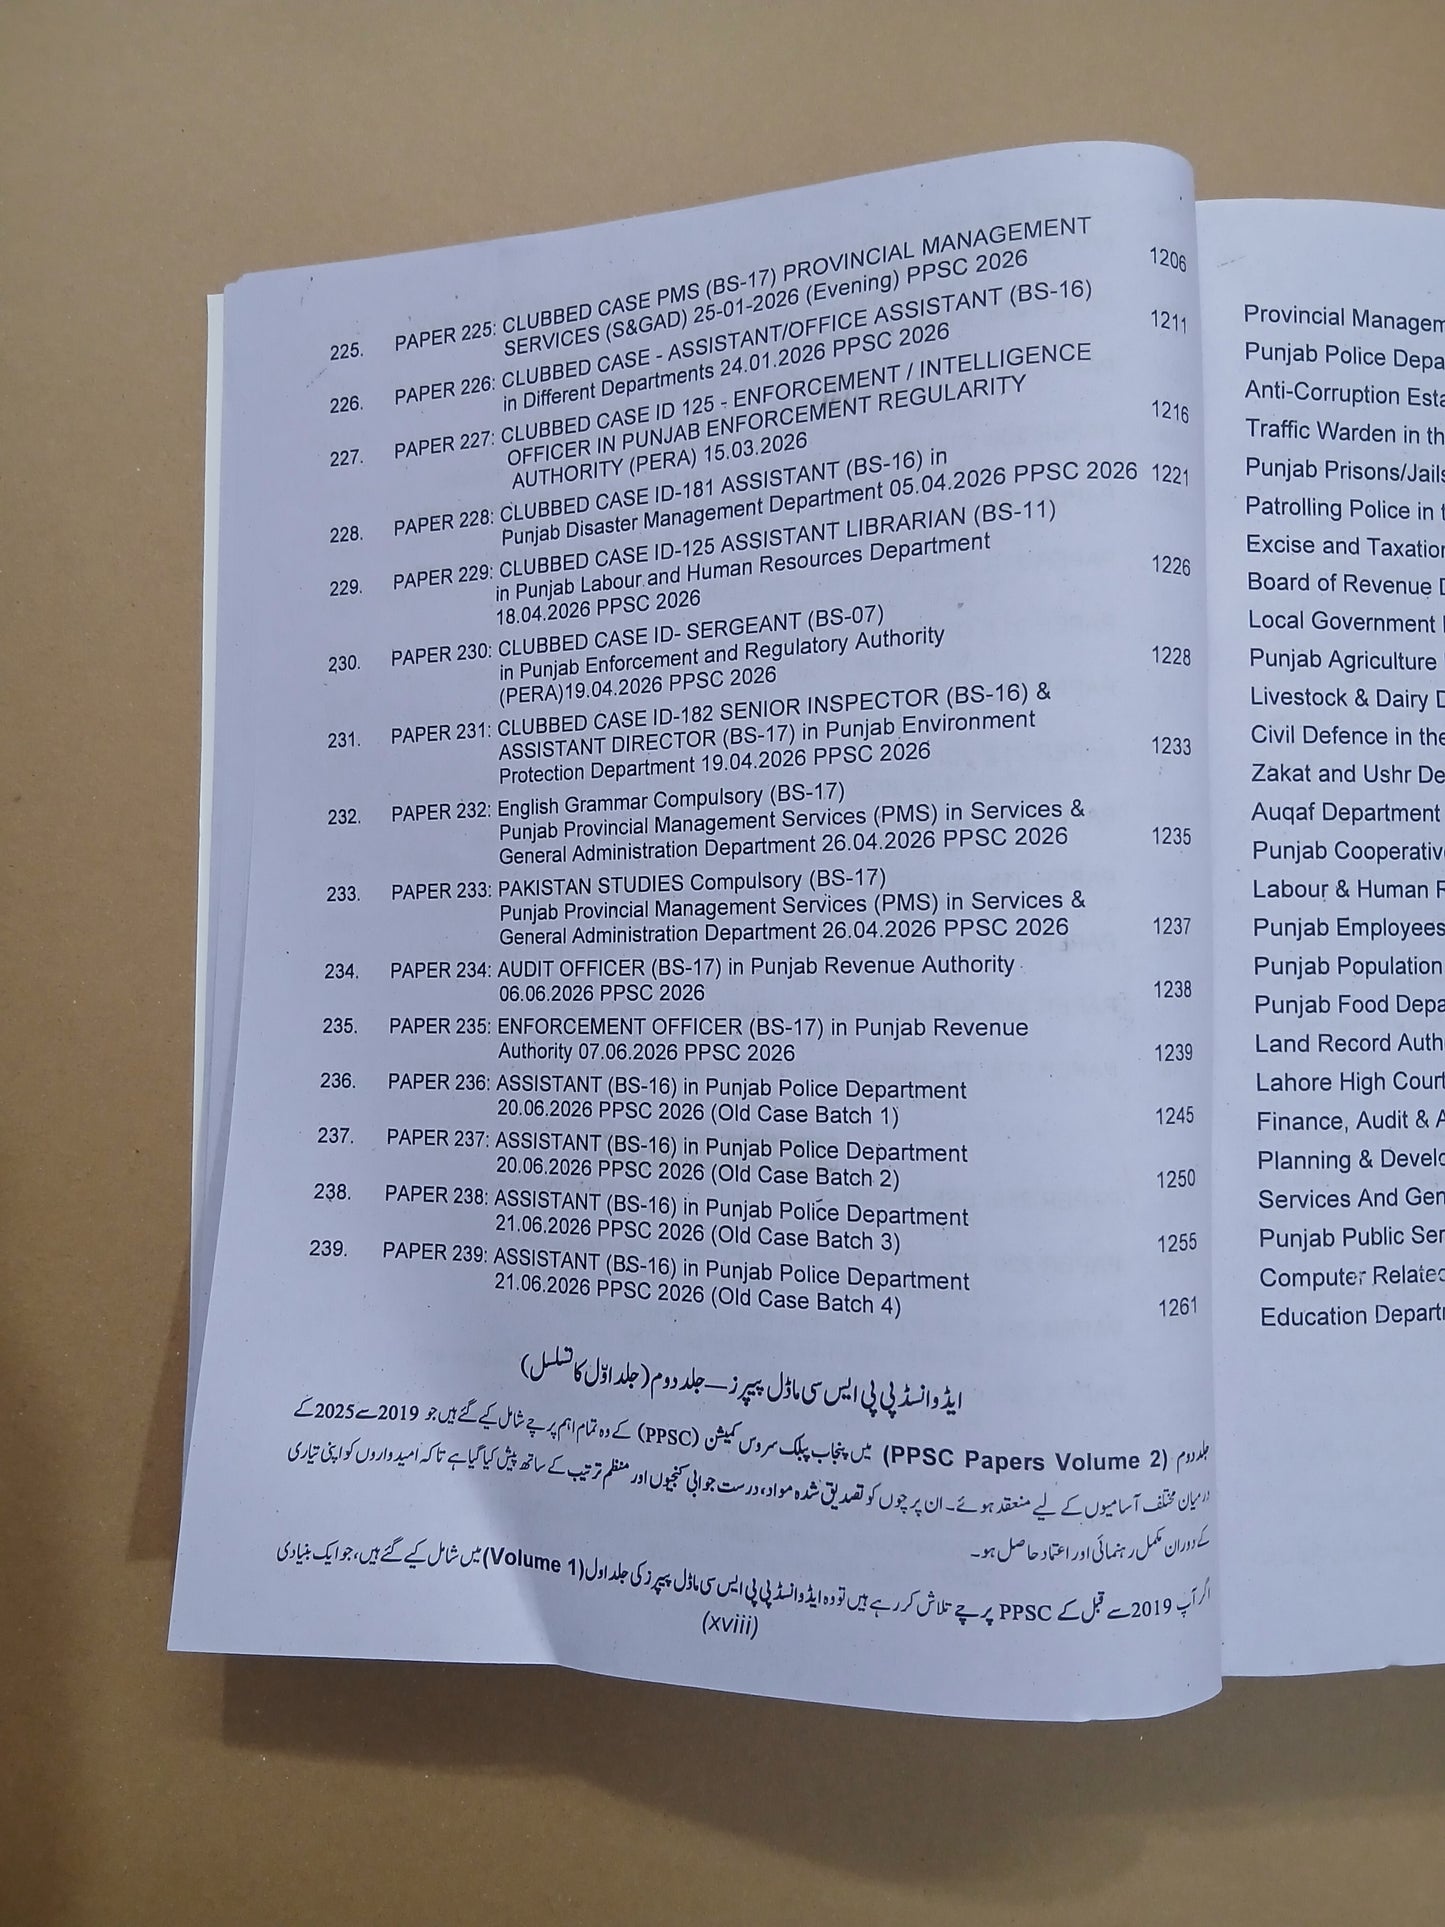 225. PAPER 225: CLUBBED CASE PMS (BS-17) PROVINCIAL MANAGEMENT
SERVICES (S&GAD) 25-01-2026 (Evening) PPSC 2026 1206
226. PAPER 226: CLUBBED CASE - ASSISTANT/OFFICE ASSISTANT (BS-16)
in Different Departments 24.01.2026 PPSC 2026 1211
227. PAPER 227: CLUBBED CASE ID 125 - ENFORCEMENT / INTELLIGENCE
OFFICER IN PUNJAB ENFORCEMENT REGULARITY
AUTHORITY (PERA) 15.03.2026 1216
228. PAPER 228: CLUBBED CASE ID-181 ASSISTANT (BS-16) in
Punjab Disaster Management Department 05.04.2026 PPSC 2026 1221
229. PAPER 229: CLUBBED CASE ID-125 ASSISTANT LIBRARIAN (BS-11)
in Punjab Labour and Human Resources Department
18.04.2026 PPSC 2026 1226
230. PAPER 230: CLUBBED CASE ID- SERGEANT (BS-07)
in Punjab Enforcement and Regulatory Authority
(PERA)19.04.2026 PPSC 2026 1228
231. PAPER 231: CLUBBED CASE ID-182 SENIOR INSPECTOR (BS-16) &
ASSISTANT DIRECTOR (BS-17) in Punjab Environment
Protection Department 19.04.2026 PPSC 2026 1233
232. PAPER 232: English Grammar Compulsory (BS-17)
Punjab Provincial Management Services (PMS) in Services &
General Administration Department 26.04.2026 PPSC 2026 1235
233. PAPER 233: PAKISTAN STUDIES Compulsory (BS-17)
Punjab Provincial Management Services (PMS) in Services &
General Administration Department 26.04.2026 PPSC 2026 1237
234. PAPER 234: AUDIT OFFICER (BS-17) in Punjab Revenue Authority
06.06.2026 PPSC 2026 1238
235. PAPER 235: ENFORCEMENT OFFICER (BS-17) in Punjab Revenue
Authority 07.06.2026 PPSC 2026 1239
236. PAPER 236: ASSISTANT (BS-16) in Punjab Police Department
20.06.2026 PPSC 2026 (Old Case Batch 1) 1245
237. PAPER 237: ASSISTANT (BS-16) in Punjab Police Department
20.06.2026 PPSC 2026 (Old Case Batch 2) 1250
238. PAPER 238: ASSISTANT (BS-16) in Punjab Police Department
21.06.2026 PPSC 2026 (Old Case Batch 3) 1255
239. PAPER 239: ASSISTANT (BS-16) in Punjab Police Department
21.06.2026 PPSC 2026 (Old Case Batch 4) 1261
ایڈوانسڈ پی پی ایس سی ماڈل پیپرز—جلد دوم (جلد اوّل کا تسلسل)
جلد دوم (PPSC Papers Volume 2) میں پنجاب پبلک سروس کمیشن (PPSC) کے وہ تمام اہم پرچے شامل کیے گئے ہیں جو 2019 سے 2025 کے
درمیان مختلف آسامیوں کے لیے منعقد ہوئے۔ ان پرچوں کو تصدیق شدہ مواد، درست جوابی کنجیوں اور منظم ترتیب کے ساتھ پیش کیا گیا ہے تاکہ امیدواروں کو اپنی تیاری
کے دوران مکمل رہنمائی اور اعتماد حاصل ہو۔
اگر آپ 2019 سے قبل کے PPSC پرچے تلاش کر رہے ہیں تو وہ ایڈوانسڈ پی پی ایس سی ماڈل پیپرز کی جلد اول (Volume 1) میں شامل کیے گئے ہیں، جو ایک بنیادی
(xviii)
Provincial Managem
Punjab Police Depa
Anti-Corruption Esta
Traffic Warden in th
Punjab Prisons/Jails
Patrolling Police in t
Excise and Taxation
Board of Revenue D
Local Government
Punjab Agriculture
Livestock & Dairy D
Civil Defence in the
Zakat and Ushr De
Auqaf Department
Punjab Cooperative
Labour & Human R
Punjab Employees
Punjab Population
Punjab Food Depa
Land Record Auth
Lahore High Court
Finance, Audit & A
Planning & Develo
Services And Gen
Punjab Public Ser
Computer Related
Education Departm